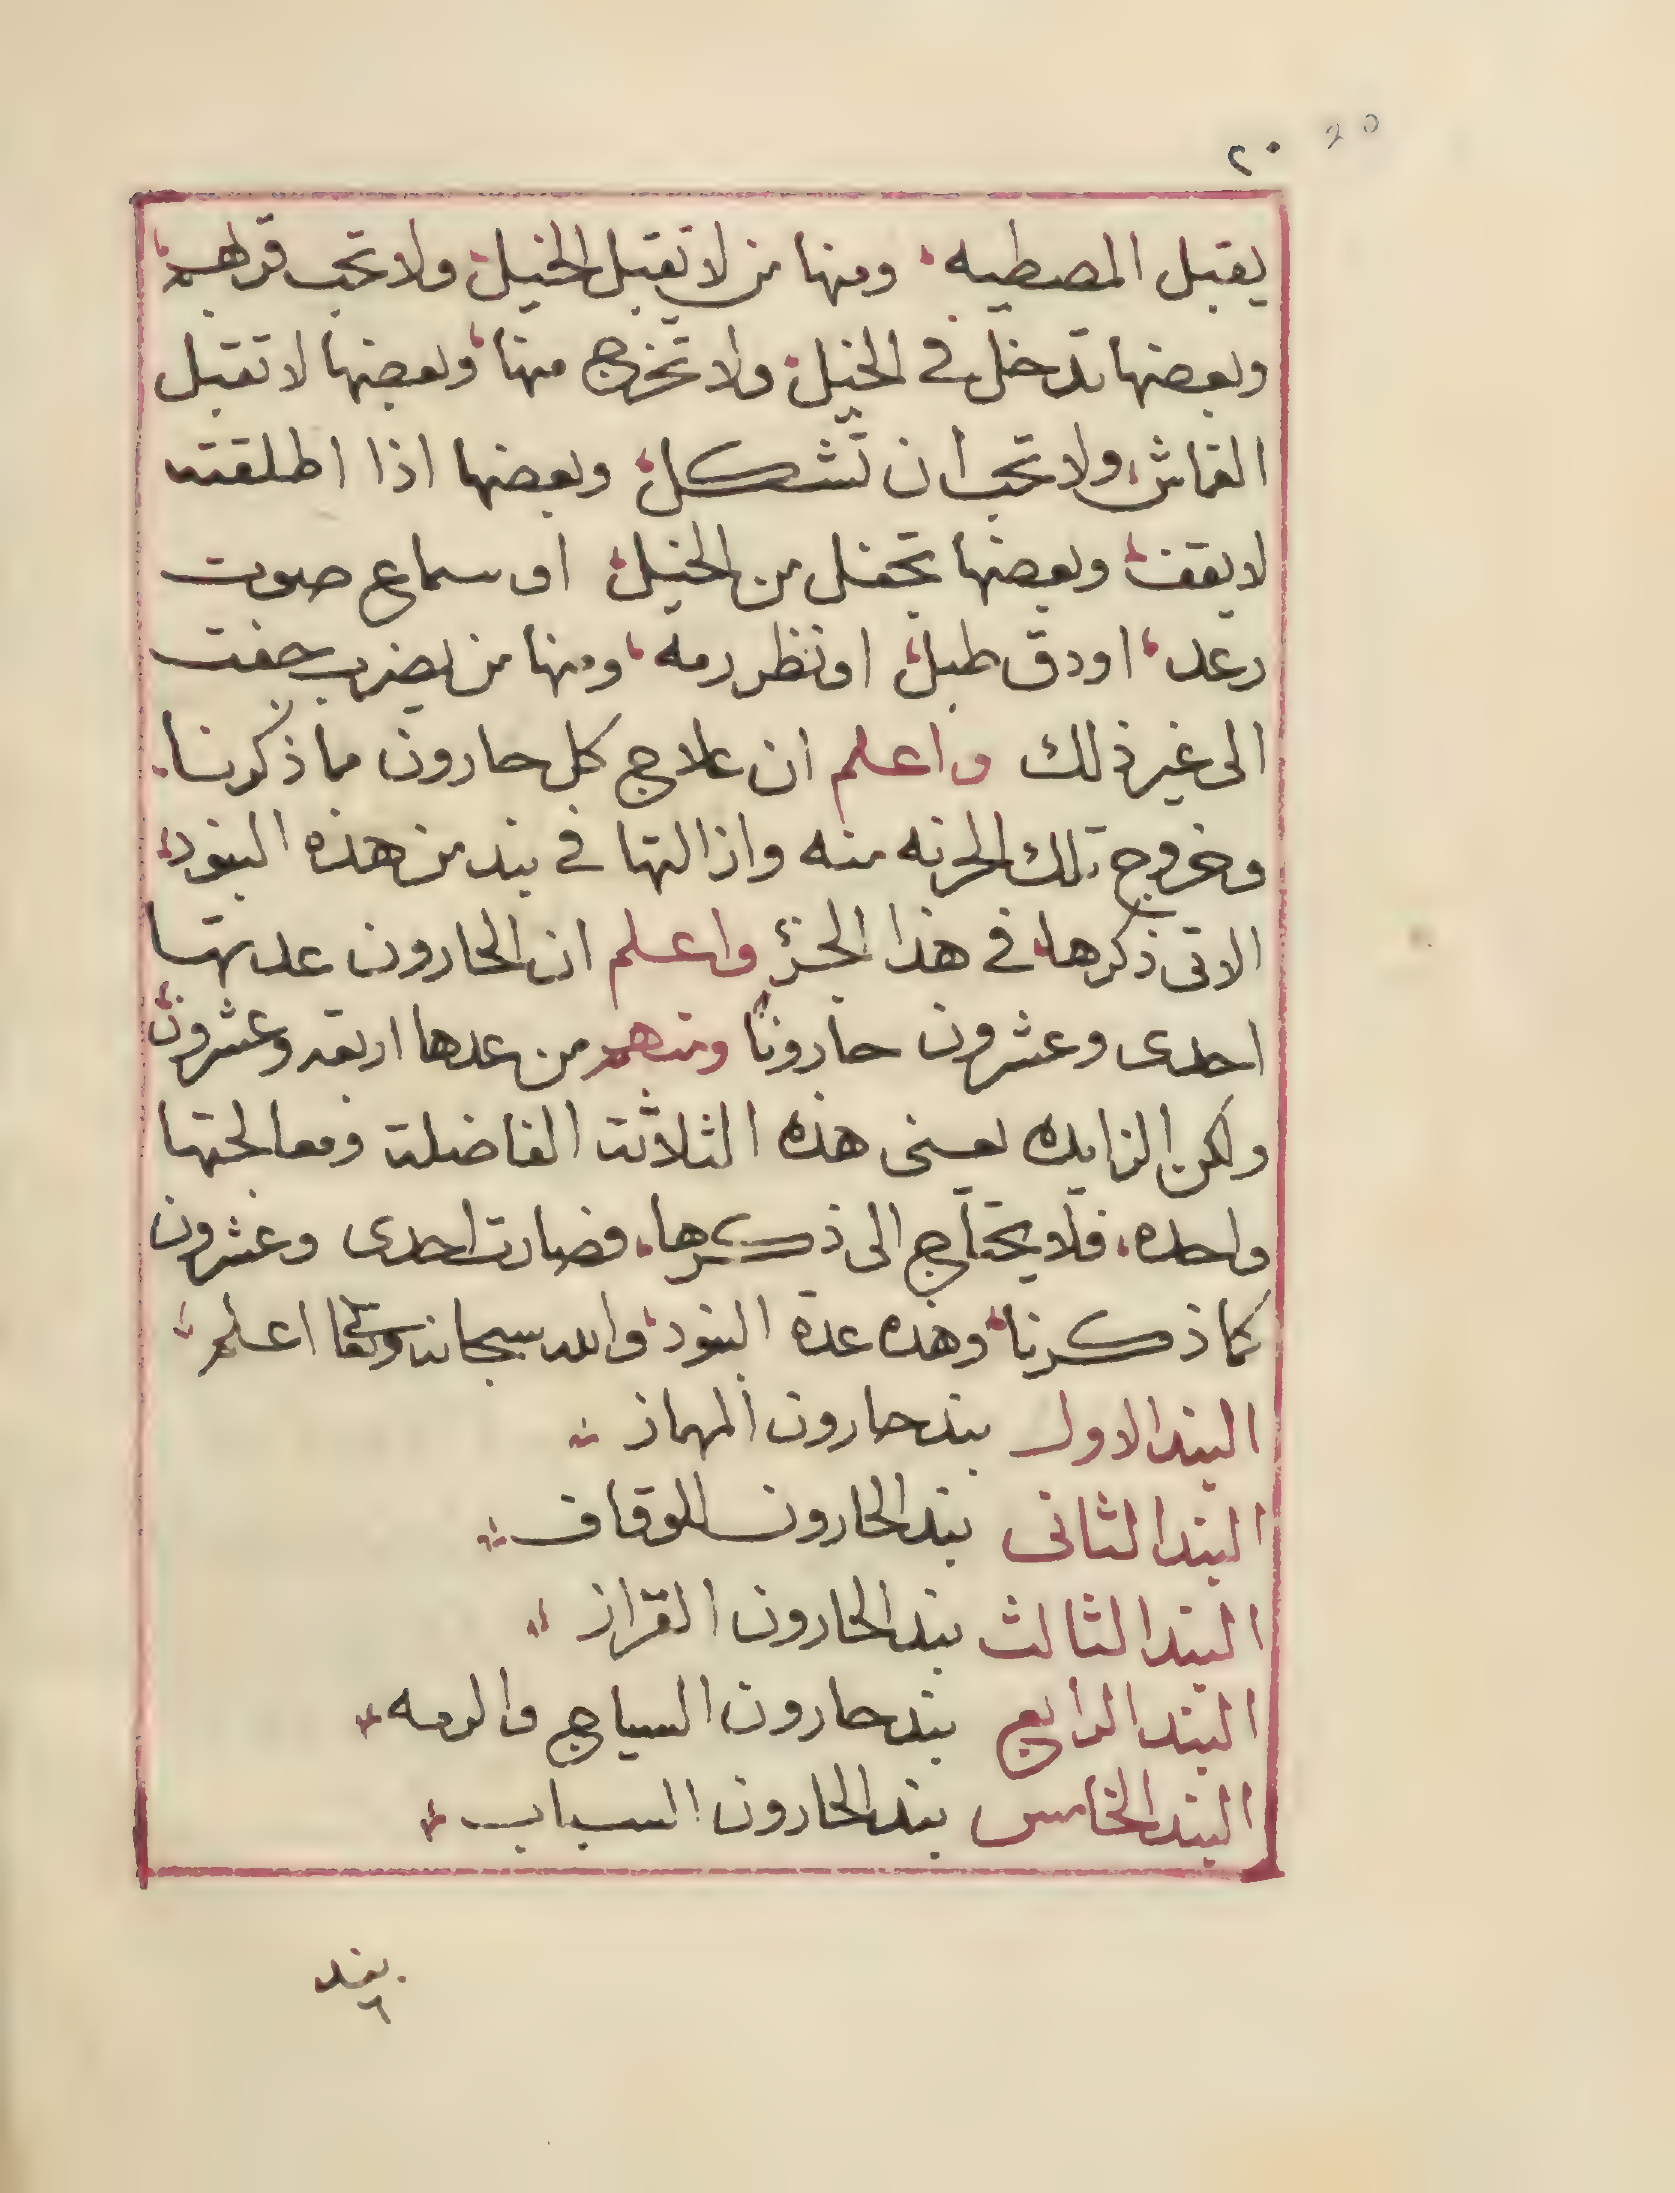 ٢٠ 20
يقبل المصطبه، ومنها من لا تقبل الخيل، ولا تحب قربهم،
وبعضها تدخل في الخيل، ولا تخرج منها، وبعضها لا تقبل
القماش، ولا تحب ان تشكل، وبعضها اذا اطلقته
لا يقف، وبعضها تجفل من الخيل، او سماع صوت
رعد، او دق طبل، او تنظر رمه، ومنها من يضرب جفت
الى غير ذلك واعلم ان علاج كل حارون مما ذكرنا،
وخروج تلك الحرنه منه وازالتها في بند من هذه البنود،
الاتى ذكرها، في هذا الجزئ واعلم ان الحارون عدتها
احدى وعشرون حارونًا ومنهم من عدها اربعه وعشرون،
ولكن الزايده يعني هذه الثلاثة الفاضلة ومعالجتها
واحده، فلا يحتاج الى ذكرها، فصارت احدى وعشرون
كما ذكرنا، وهذه عدة البنود، والله سبحانه وتعا اعلم
البند الاول بند حارون المهماز
البند الثانى بند الحارون الوقاف
البند الثالث بند الحارون القزاز
البند الرابع بند حارون السياج والرمه
البند الخامس بند الحارون السباب
بند
٦